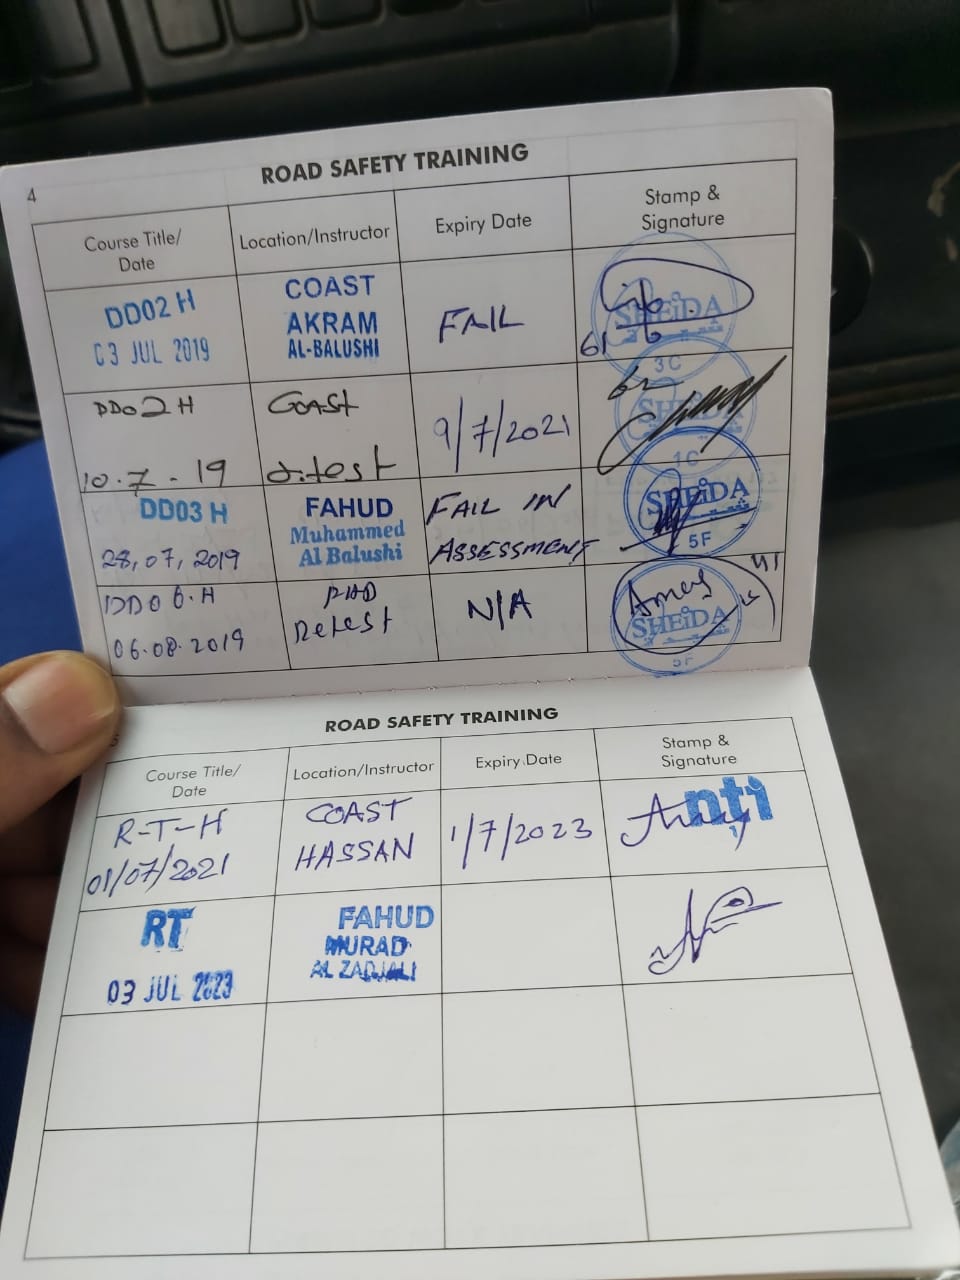 4
ROAD SAFETY TRAINING
Course Title/
Date
Location/Instructor
Expiry Date
Stamp &
Signature
DD02 H
03 JUL 2019
COAST
AKRAM
AL-BALUSHI
FAIL
SHEiDA
61
3C
DD02H
10.7.19
Coast
9/7/2021
62
SHEiDA
1C
DD03 H
28,07,2019
FAHUD
Muhammed
Al Balushi
FAIL IN
ASSESSMENT
SHEiDA
5F
DD06.H
06.08.2019
Retest
N/A
SHEiDA
5F
ROAD SAFETY TRAINING
Course Title/
Date
Location/Instructor
Expiry Date
Stamp &
Signature
R-T-H
01/07/2021
COAST
HASSAN
1/7/2023
nti
RT
03 JUL 2023
FAHUD
MURAD
AL ZADJALI